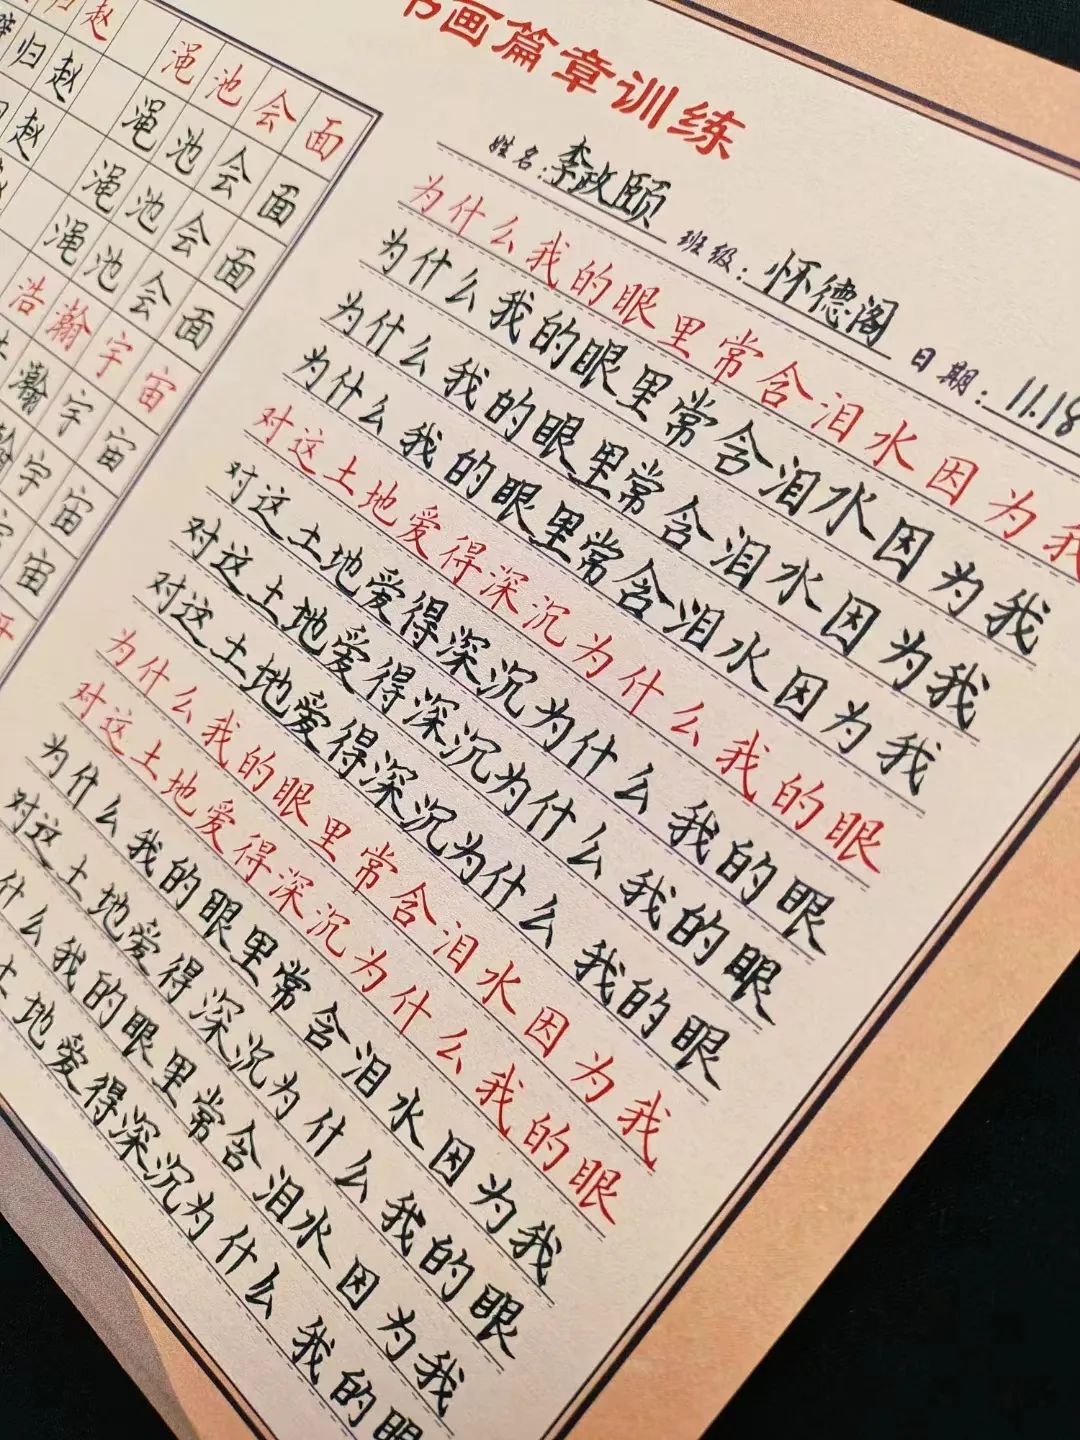 书画篇章训练
姓名：李政颐 班级：怀德阁 日期：11.18
为什么我的眼里常含泪水因为我
为什么我的眼里常含泪水因为我
为什么我的眼里常含泪水因为我
为什么我的眼里常含泪水因为我
对这土地爱得深沉为什么我的眼
对这土地爱得深沉为什么我的眼
对这土地爱得深沉为什么我的眼
对这土地爱得深沉为什么我的眼
为什么我的眼里常含泪水因为我
对这土地爱得深沉为什么我的眼
为什么我的眼里常含泪水因为我
对这土地爱得深沉为什么我的眼
什么我的眼里常含泪水因为我
土地爱得深沉为什么我的眼
归赵 渑池会面
归赵 渑池会面
赵 渑池会面
渑池会面
浩瀚宇宙
瀚宇宙
瀚宇宙
宇宙